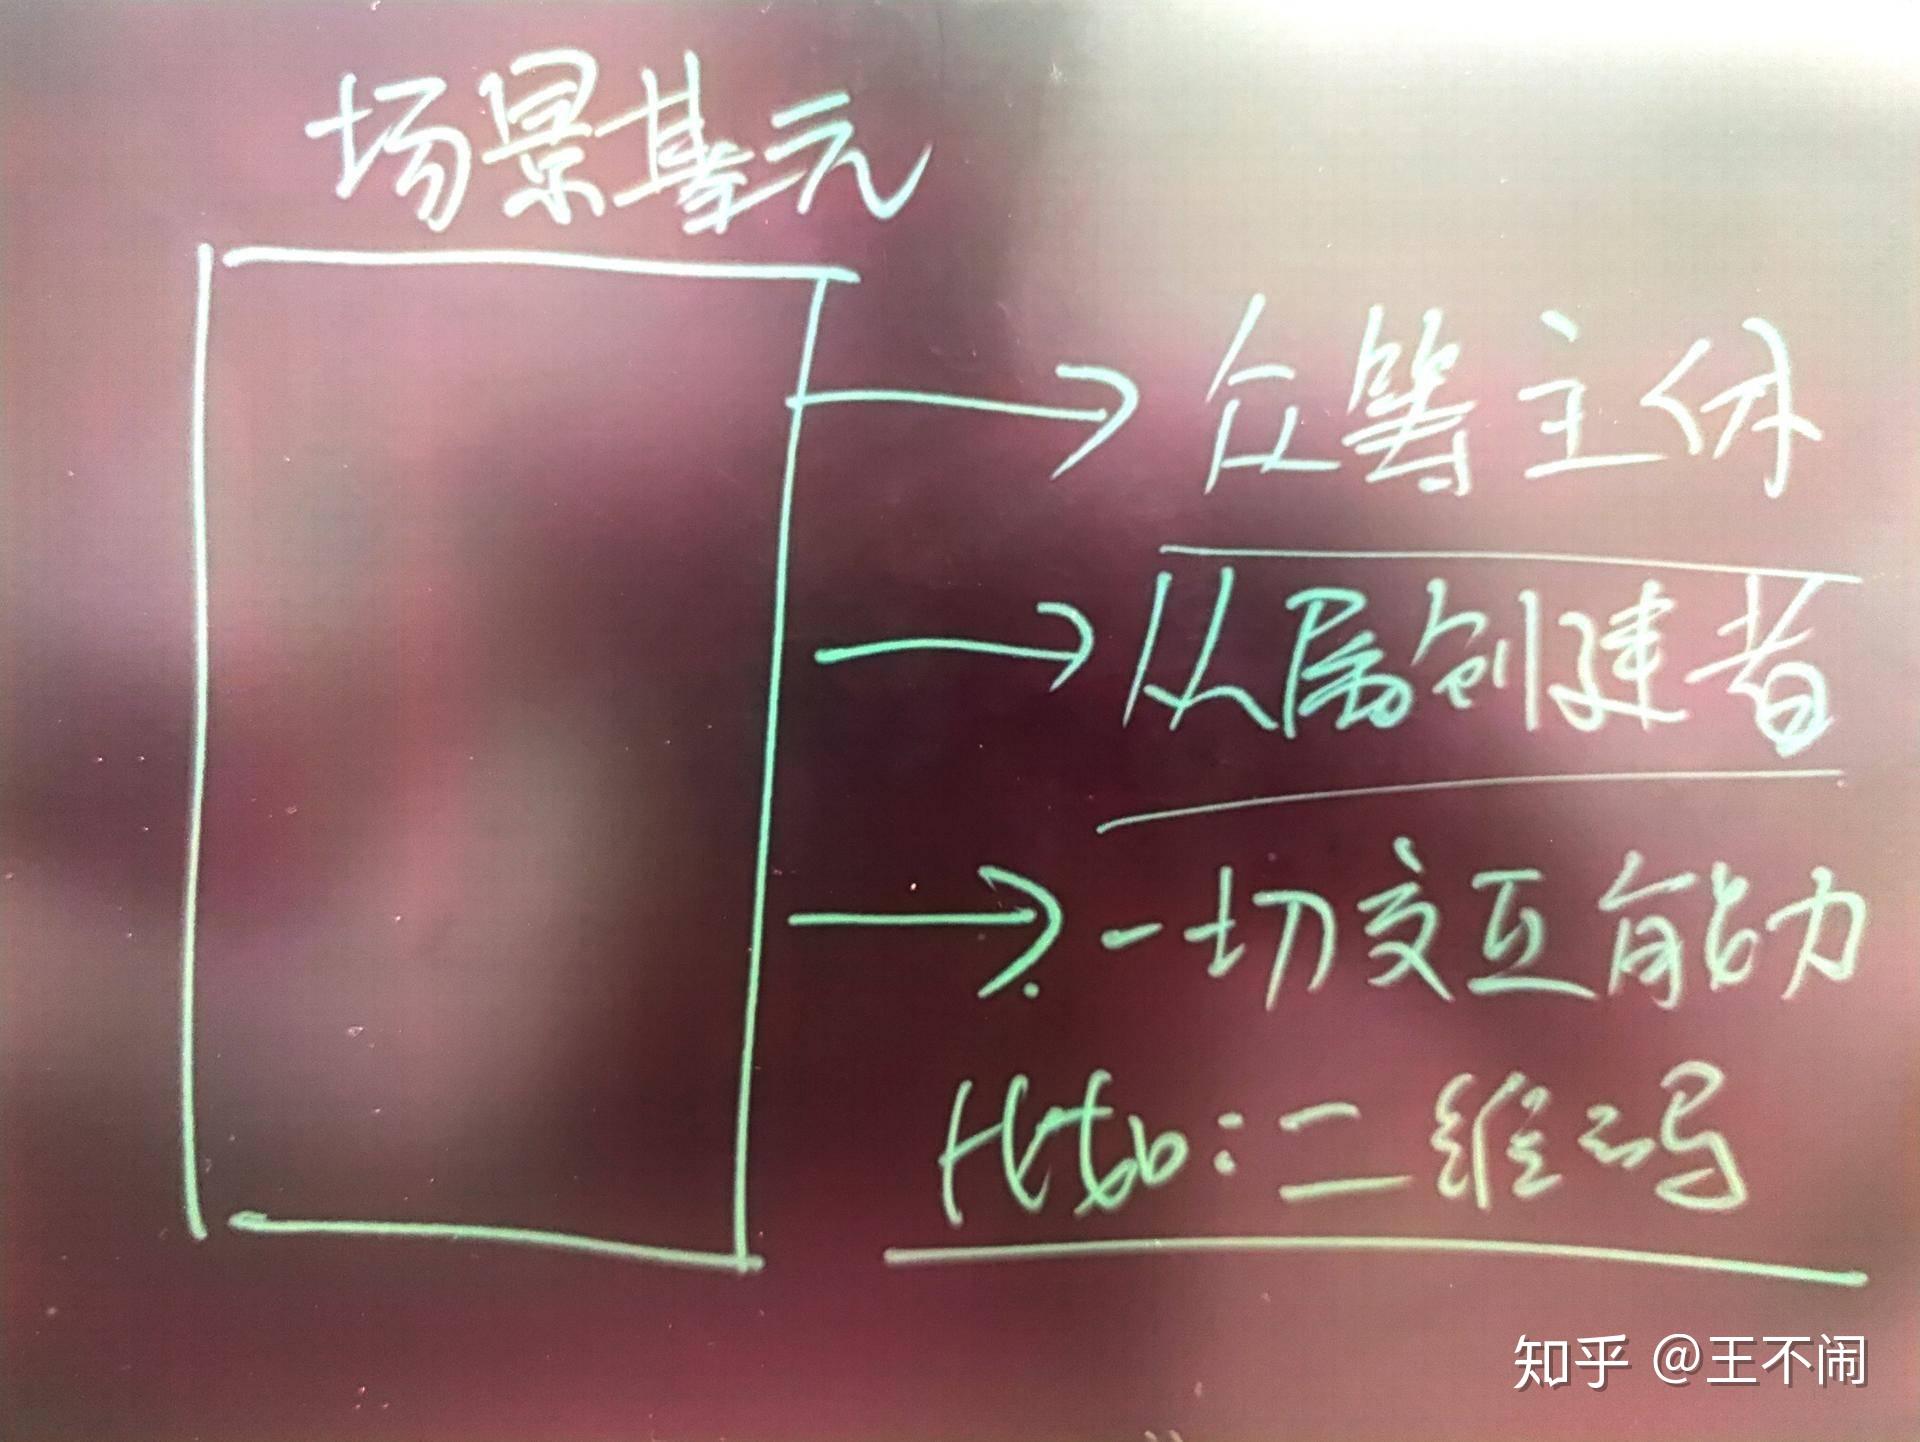 场景基元
众筹主体
从属创建者
一切交互能力
比如:二维码
知乎 @王不闹